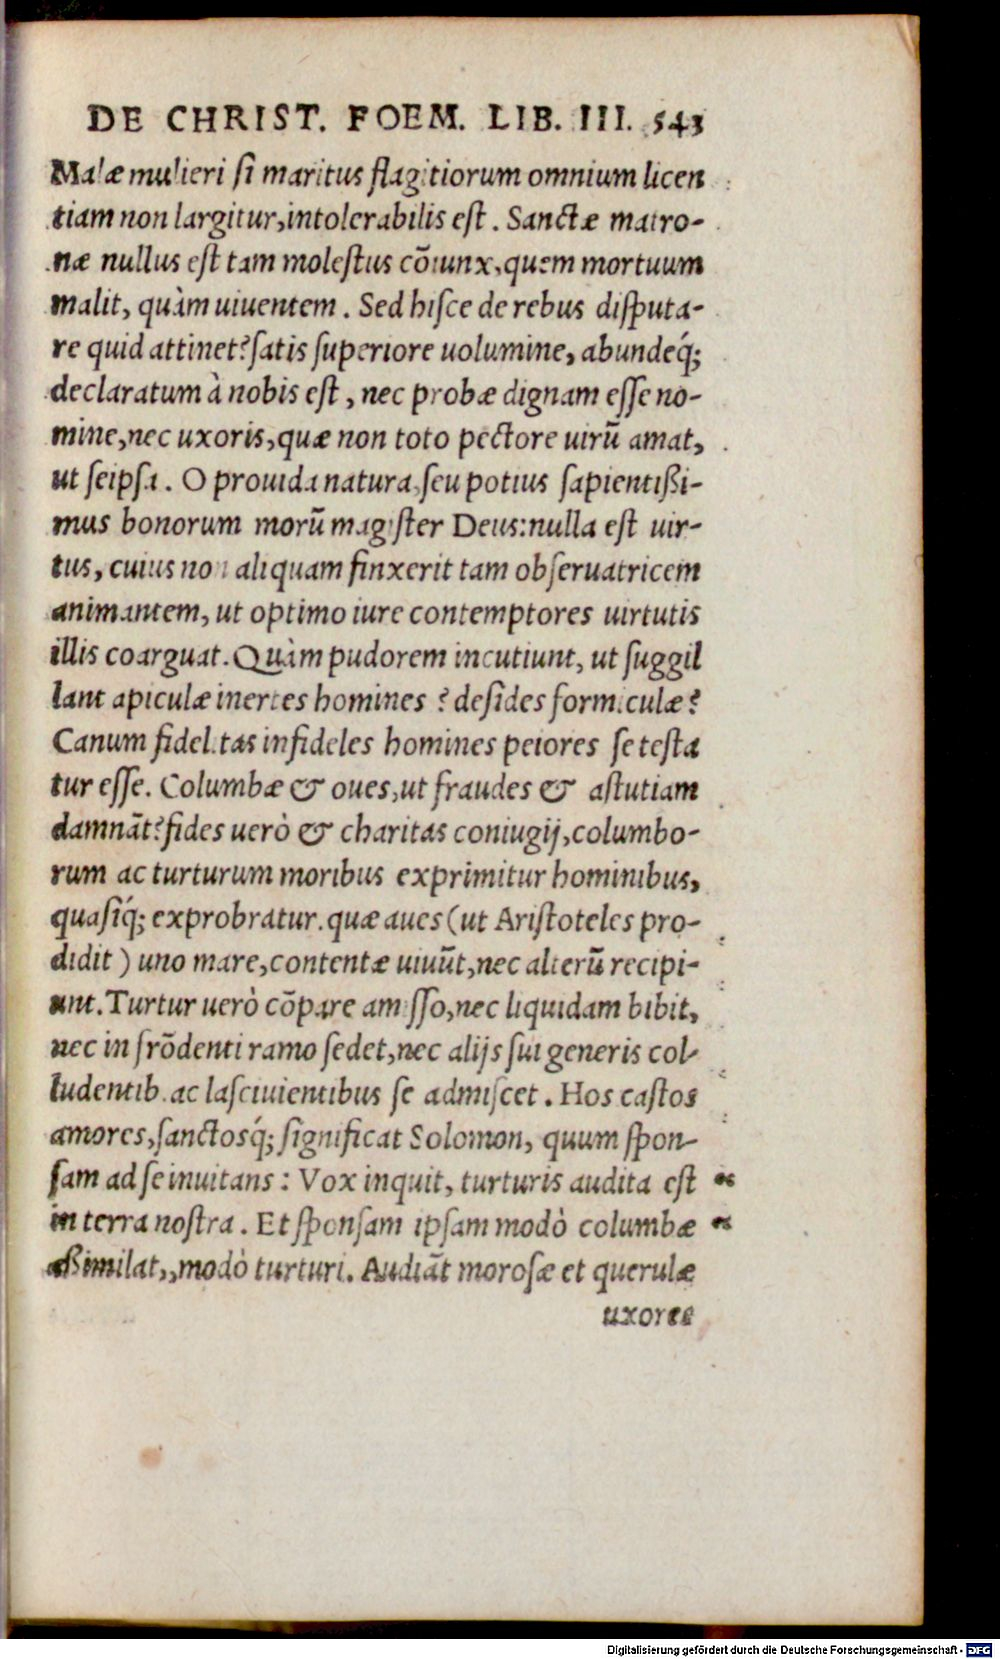 DE CHRIST. FOEM. LIB. III. 543
Malæ mulieri ſi maritus flagitiorum omnium licen
tiam non largitur, intolerabilis eſt. Sanctæ matro-
næ nullus eſt tam moleſtus cōiunx, quem mortuum
malit, quàm uiuentem. Sed hiſce de rebus diſputa-
re quid attinet? ſatis ſuperiore uolumine, abundeq́;
declaratum à nobis eſt, nec probæ dignam eſſe no-
mine, nec uxoris, quæ non toto pectore uirū amat,
ut ſeipſa. O prouida natura, ſeu potius ſapientißi-
mus bonorum morū magiſter Deus: nulla eſt uir-
tus, cuius non aliquam finxerit tam obſeruatricem
animantem, ut optimo iure contemptores uirtutis
illis coarguat. Quàm pudorem incutiunt, ut ſuggil
lant apiculæ inertes homines? deſides formiculæ?
Canum fidelitas infideles homines peiores ſe teſta
tur eſſe. Columbæ & oues, ut fraudes & aſtutiam
damnāt? fides uerò & charitas coniugij, columbo-
rum ac turturum moribus exprimitur hominibus,
quaſiq́; exprobratur. quæ aues (ut Ariſtoteles pro-
didit) uno mare, contentæ uiuūt, nec alterū recipi-
unt. Turtur uerò cōpare amiſſo, nec liquidam bibit,
nec in frōdenti ramo ſedet, nec alijs ſui generis col-
ludentib. ac laſciuientibus ſe admiſcet. Hos caſtos
amores, ſanctosq́; ſignificat Solomon, quum ſpon-
ſam ad ſe inuitans: Vox inquit, turturis audita eſt
in terra noſtra. Et ſponſam ipſam modò columbæ
aßimilat,, modò turturi. Audiāt moroſæ et querulæ
uxores
Digitalisierung gefördert durch die Deutsche Forschungsgemeinschaft - DFG